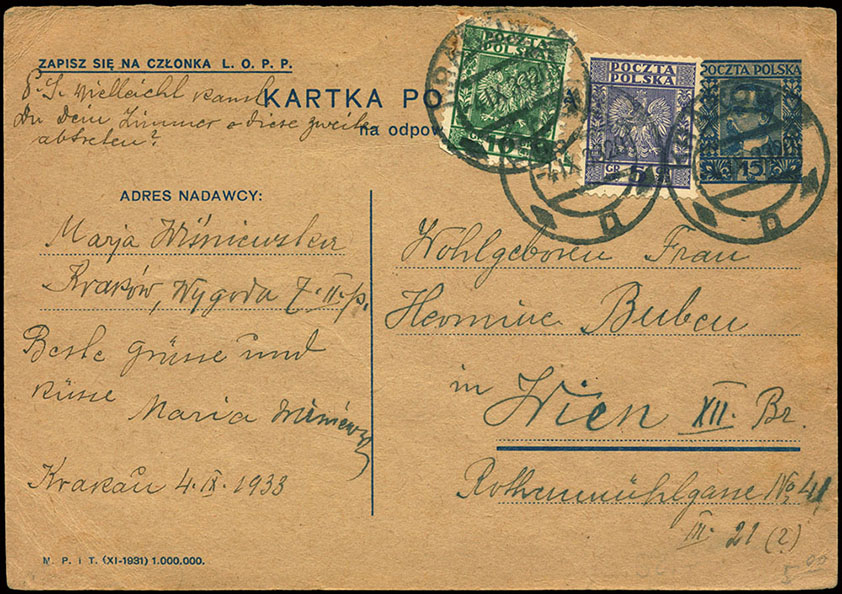 ZAPISZ SIĘ NA CZŁONKA L. O. P. P.
P.S. Vielleicht kannst
Du Dein Zimmer diese zweite
abtreten?
KARTKA PO
na odpow
POCZTA
POLSKA
10
POCZTA
POLSKA
GR 5 GR
POCZTA POLSKA
15
ADRES NADAWCY:
Marja Wiśniewska
Kraków, Wygoda 7. II. p.
Beste Grüsse und
Küsse
Maria
Krakau 4. IX. 1933
Wohlgeboren Frau
Hermine Buben
in Wien XII. Br.
Rothenmühlgasse No 41
III. 21 (2)
M. P. i T. (XI-1931) 1.000.000.